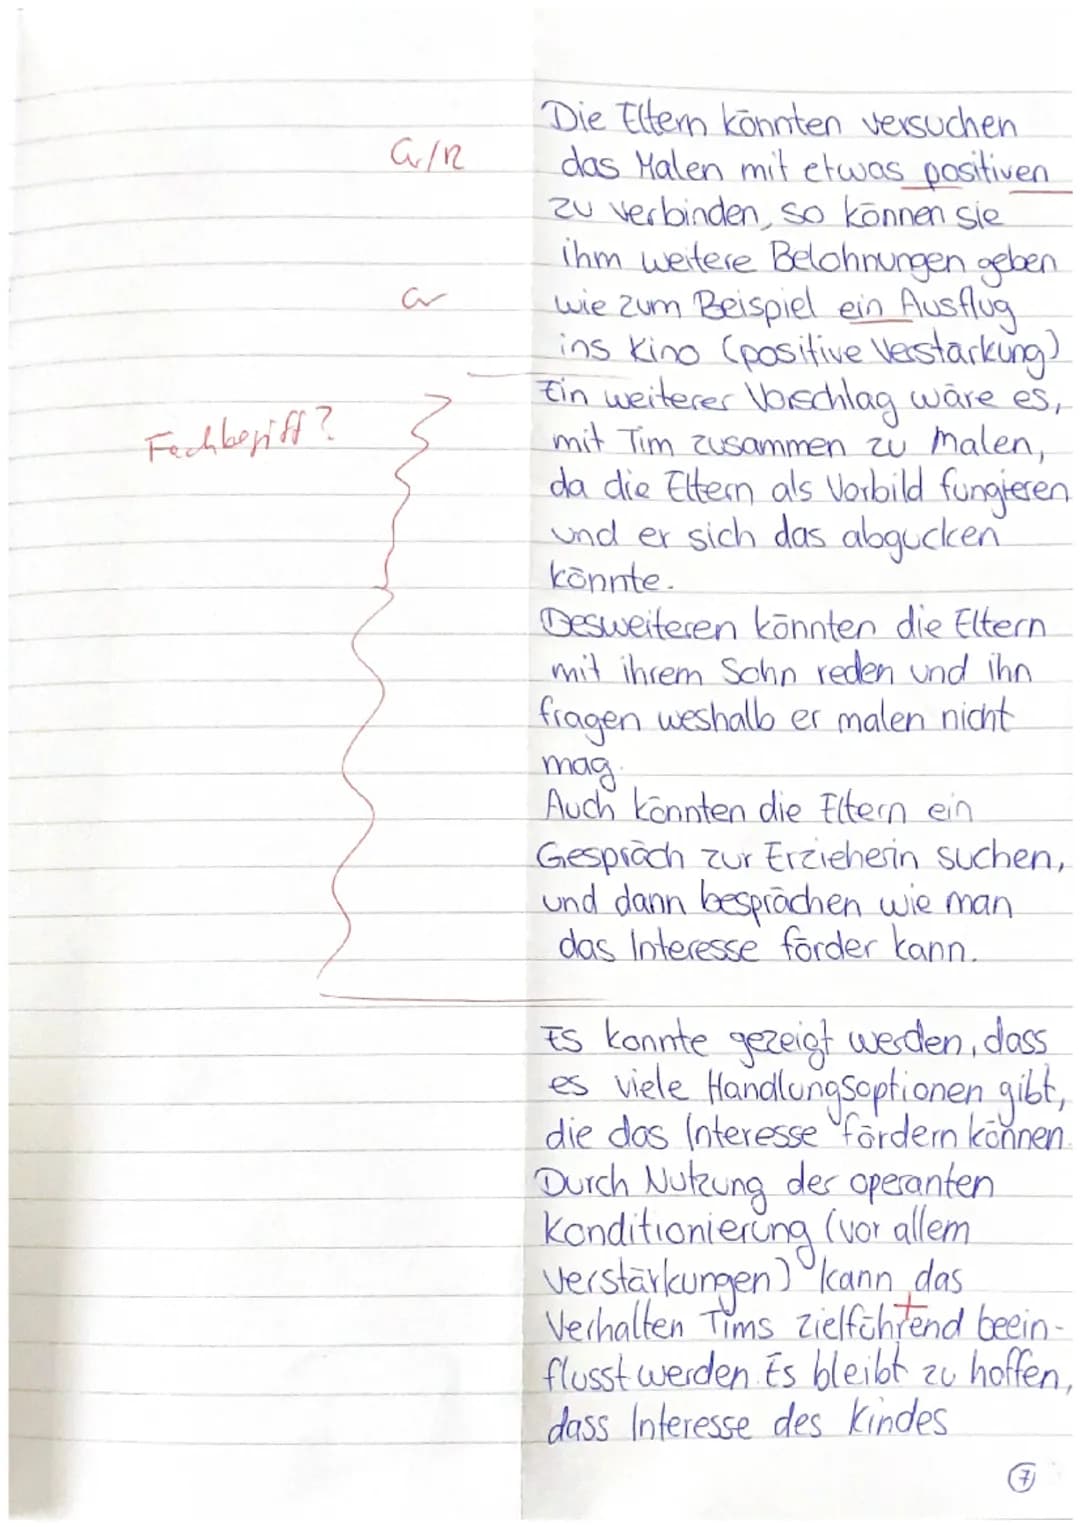 Die Eltern könnten versuchen
G/R
das Malen mit etwas positiven
zu verbinden, so können sie
ihm weitere Belohnungen geben
Gr
wie zum Beispiel ein Ausflug
ins Kino (positive Verstärkung)
Ein weiterer Vorschlag wäre es,
Fachbegriff?
mit Tim zusammen zu Malen,
da die Eltern als Vorbild fungieren
und er sich das abgucken
könnte.
Desweiteren könnten die Eltern
mit ihrem Sohn reden und ihn
fragen weshalb er malen nicht
mag.
Auch könnten die Eltern ein
Gespräch zur Erzieherin suchen,
und dann besprächen wie man
das Interesse förder kann.
Es konnte gezeigt werden, dass
es viele Handlungsoptionen gibt,
die das Interesse fördern können.
Durch Nutzung der operanten
Konditionierung (vor allem
Verstärkungen) kann das
Verhalten Tims zielführend beein-
flusst werden. Es bleibt zu hoffen,
dass Interesse des Kindes
7